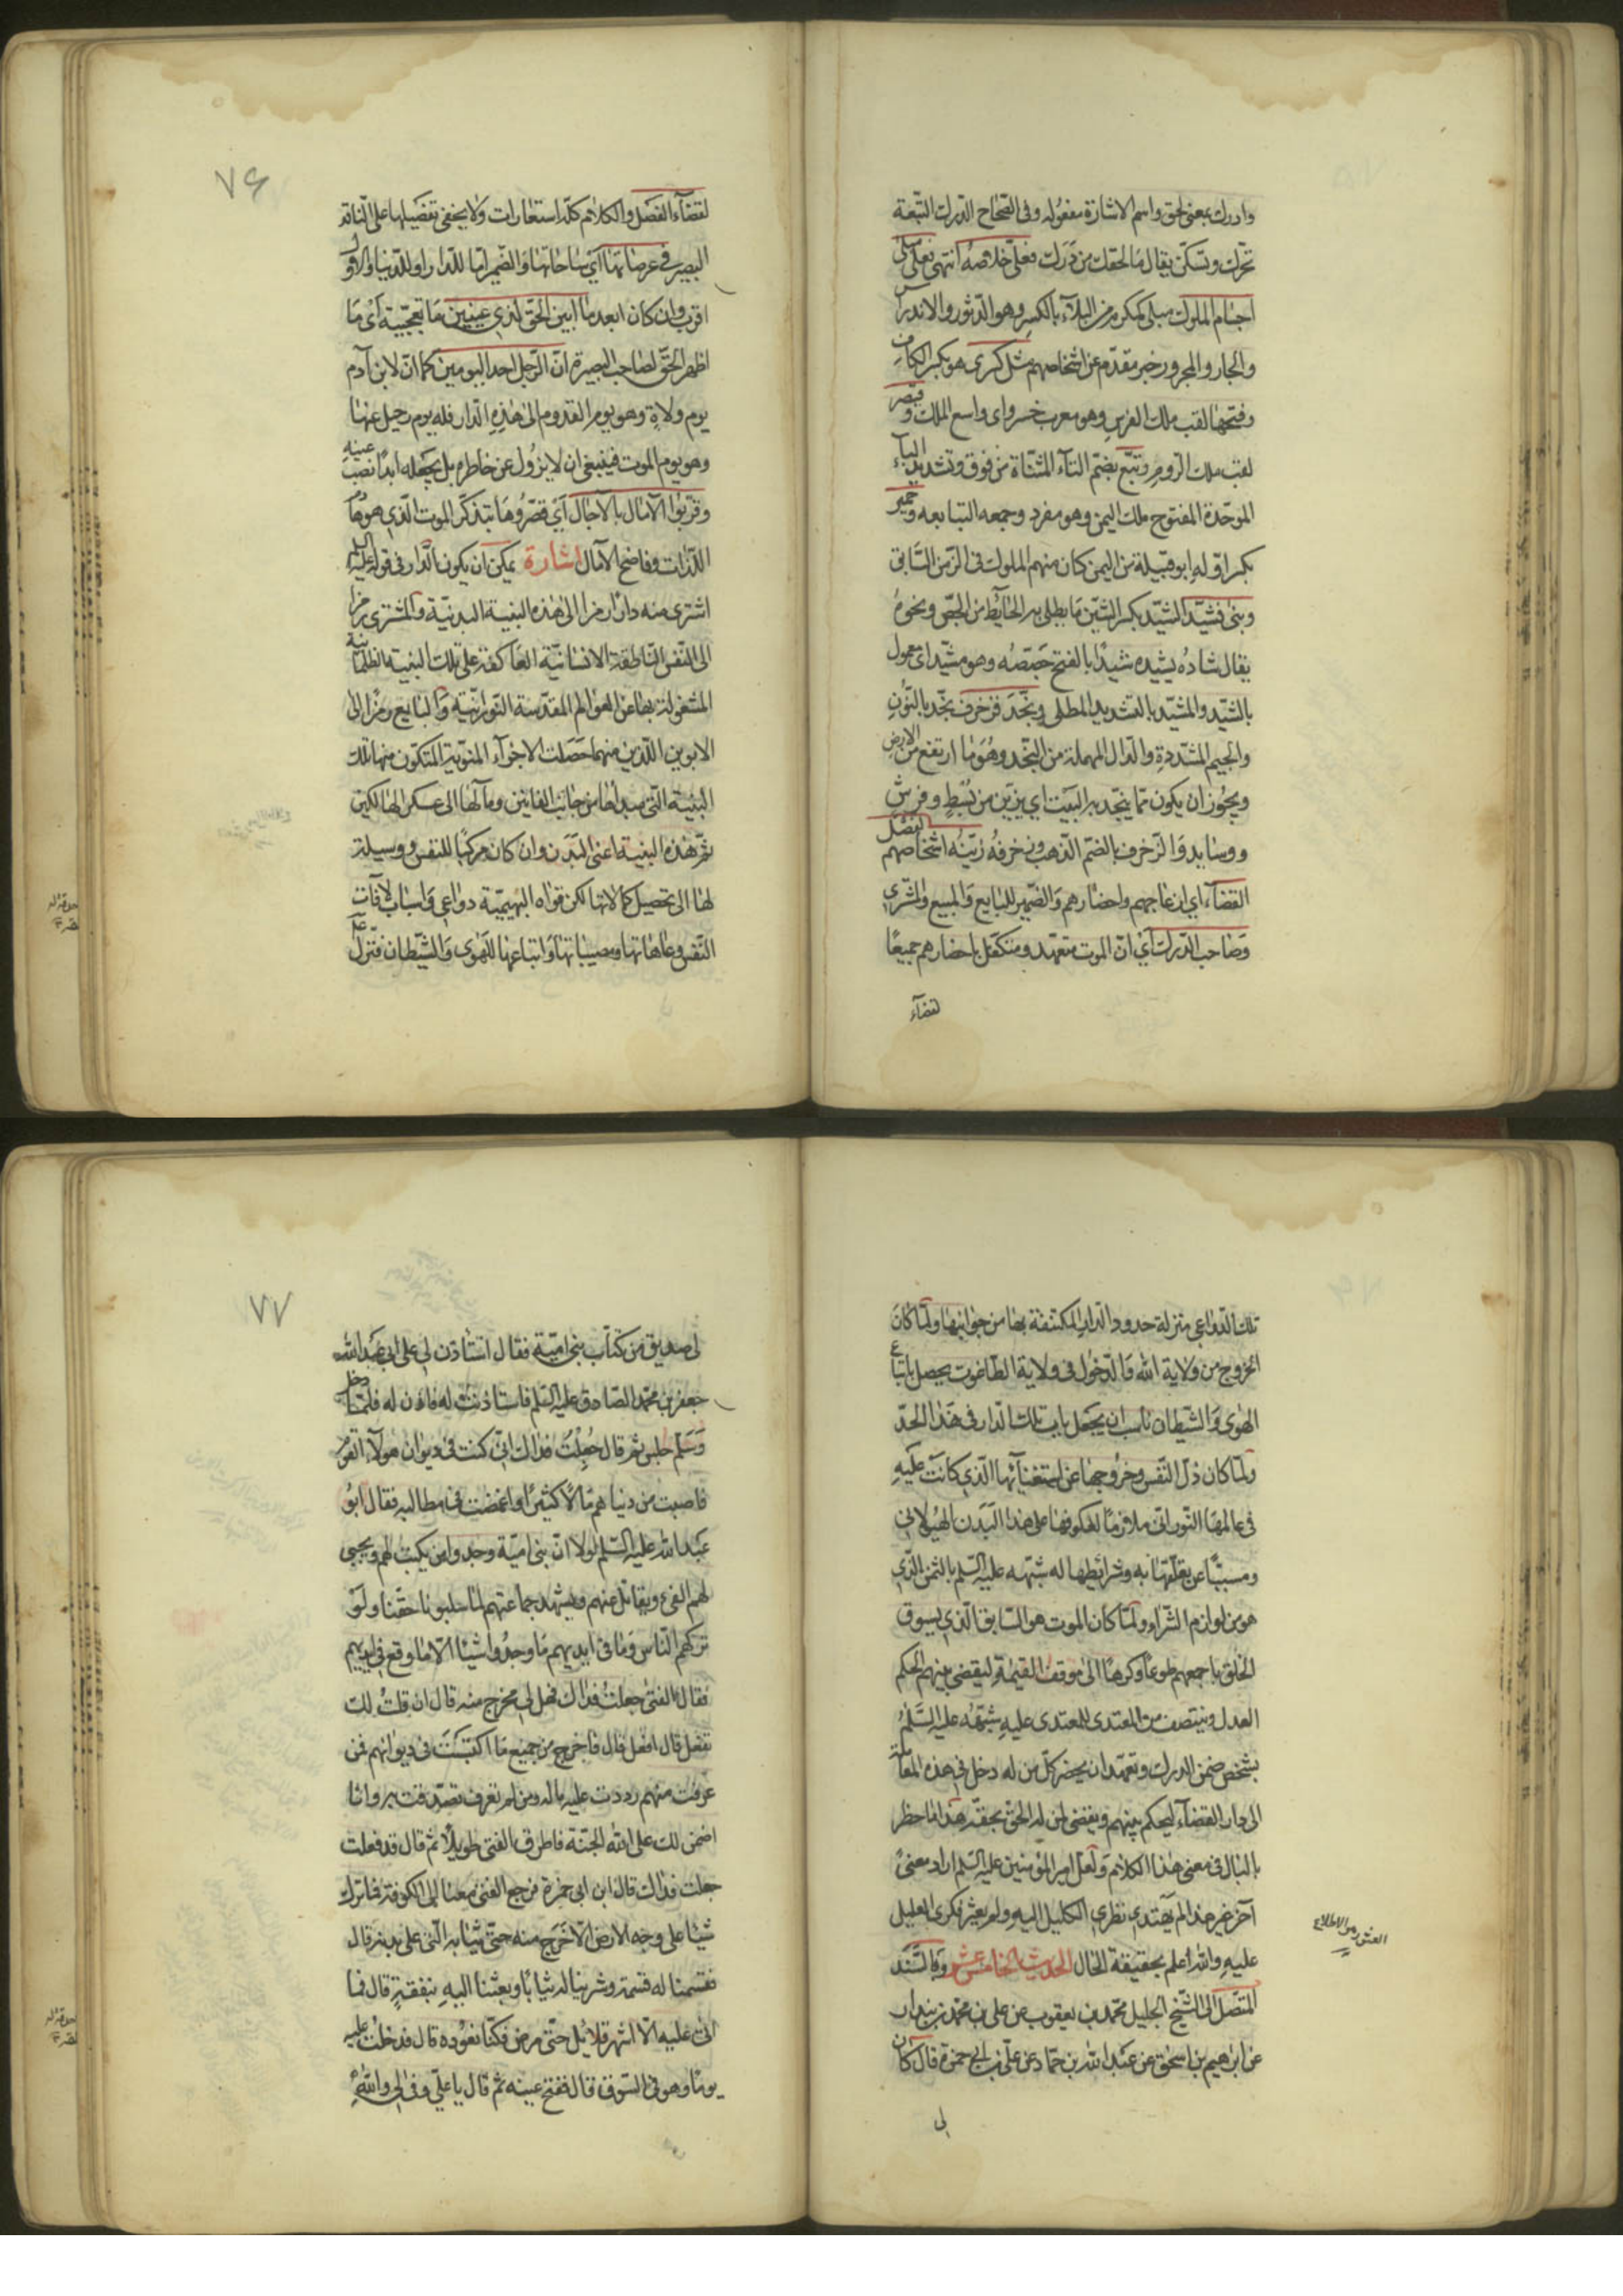 وادرك بمعنى لحق واسم الاشارة مفعوله وفى الصحاح الدرك التبعة
تحرّك وتسكّن يقال ما لحقك من دَرَك فعلىّ خلاصه انتهى فعلى مبلى
اجسام الملوك مبلى كمكرم من البلاء بالكسر وهو الدثور والاندراس
والجار والمجرور خبر مقدّم عن اشخاصهم مثل كسرى هو بكسر الكاف
وفتحها لقب ملك الفرس وهو معرب خسرو اى واسع الملك وقيصر
لقب ملك الروم وتبّع بضمّ التاء المثنّاة من فوق وتشديد الباء
الموحّدة المفتوح ملك اليمن وهو مفرد وجمعه التبابعه وحمير
بكسر اوّله ابو قبيلة من اليمن كان منهم الملوك فى الزمن السّابق
وبنى فشيّد الشيد بكسر الشين ما يطلى به الحائط من الجصّ ونحوه
يقال شاده يشيده شيدًا بالفتح جصّصه وهو مشيد اى معمول
بالشيد والمشيّد بالتشديد المطلى ونجّد فزخرف نجّد بالنّون
والجيم المشدّدة والدال المهملة من النجد وهو ما ارتفع من الارض
ويجوز ان يكون ممّا ينجّد به البيت اى يزيّن من بُسُطٍ وفرش
ووسايد والزخرف بالضمّ الذهب وزخرفه زيّنه اشخاصهم لفصل
القضاء اى ازعاجهم واحضارهم والضمير للبايع والمبيع والمشترى
وصاحب الدرك اى انّ الموت متعهد ومتكفّل باحضارهم جميعًا
لقضاء
٧۶
لقضاء الفصل والكلام كلّه استعارات ولا يخفى تفصيلها على الناقد
البصير فى عرصاتها اى ساحاتها والضمير امّا للدار او للدنيا والاوّل
اقرب وان كان ابعد ما ابين الحقّ لذى عينين ما تعجّبية اى ما
اظهر الحقّ لصاحب البصيرة انّ الرّحيل احد اليومين كما انّ لابن آدم
يوم ولادة وهو يوم القدوم الى هذه الدار فله يوم رحيل عنها
وهو يوم الموت فينبغى ان لا يزول عن خاطره بل يجعله ابدًا نصب عينيه
وقرّبوا الآمال بالآجال اى قصّروها بتذكّر الموت الذى هو هادم
اللذات وفاضح الآمال اشارة يمكن ان يكون الدار فى قوله عليه السلم
اشترى منه دارًا رمزا الى هذه البنية البدنيّة والمشترى رمزا
الى النفس الناطقة الانسانيّة العاكفة على تلك البنية الظلمانية
المشغولة بها عن العوالم المقدّسة النورانيّة والبايع رمزًا الى
الابوين اللذين منهما حصلت الاجزاء المنويّة المتكوّن منها تلك
البنية التى مبدأها من جانب الفانين ومآلها الى عسكر الهالكين
ثمّ هذه البنية اعنى البدن وان كان مركبًا للنفس ووسيلة
لها الى تحصيل كمالاتها لكن قواه البهيميّة دواعى واسباب لآفات
النّفس وعاهاتها ومصيباتها واتباعها للهوى والشّيطان فنزّل عليه
تلك الدواعى منزلة حدود الدار المكتنفة بها من جوانبها ولمّا كان
الخروج من ولاية الله والدّخول فى ولاية الطاغوت يحصل باتباع
الهوى والشّيطان ناسب ان يجعل باب تلك الدار فى هذا الحدّ
ولمّا كان ذلّ النّفس وخروجها عن استغنائها الّذى كانت عليه
فى عالمها النّورانى ملازمًا لعكوفها على هذا البدن الهيولانى
ومسببًا عن تعلّقها به وشرائطها له شبّهه عليه السّلم بالثمن الّذى
هو من لوازم الشّراء ولمّا كان الموت هو السّابق الّذى يسوق
الخلق باجمعهم طوعًا وكرهًا الى موقف القيمة ليقضى بينهم الحكم
العدل وينتصف من المعتدى للمعتدى عليه شبّهه عليه السّلم
بشخص ضمن الدرك وتعهّد ان يحضر كلّ من له دخل فى هذه المعاملة
الى دار القضاء ليحكم بينهم ويقضى لمن له الحق بحقّه هذا ما خطر
بالبال فى معنى هذا الكلام ولعلّ امير المؤمنين عليه السّلم اراد معنى
آخر غير هذا لم يهتدى نظرى الكليل اليه ولم يعثر فكرى العليل
عليه والله اعلم بحقيقة الحال الحديث الخامس عشر وبالسّند
المتّصل الى الشّيخ الجليل محمّد بن يعقوب عن على بن محمّد بن بندار
عن ابرهيم بن اسحق عن عبد الله بن حمّاد عن علىّ بن ابى حمزة قال كان
لى
العثور هو الاطلاع
٧٧
لى صديق من كتّاب بنى اميّة فقال استاذن لى على ابى عبد الله
جعفر بن محمّد الصّادق عليه السّلم فاستاذنت له فاذن له فلمّا دخل
وسلّم جلس ثم قال جُعِلْتُ فداك انّى كنت فى ديوان هولاء القوم
فاصبت من دنياهم مالاً كثيرًا واغمضت فى مطالبه فقال ابو
عبد الله عليه السّلم لولا انّ بنى اميّة وجدوا من يكتب لهم ويجبى
لهم الفىء ويقاتل عنهم ويشهد جماعتهم لما سلبونا حقّنا ولو
تركهم النّاس وما فى ايديهم ما وجدوا شيئا الّا ما وقع فى ايديهم
فقال الفتى جعلت فداك فهل لى مخرج منه قال ان قلت لك
تفعل قال افعل قال فاخرج من جميع ما اكتسبت فى ديوانهم فمن
عرفت منهم رددت عليه ماله ومن لم تعرف تصدّقت به وانا
اضمن لك على الله الجنّة فاطرق الفتى طويلًا ثم قال قد فعلت
جعلت فداك قال ابن ابى حمزة فرجع الفتى معنا الى الكوفة فما ترك
شيئا على وجه الارض الّا خرج منه حتى ثيابه الّتى على بدنه قال
فقسمنا له قسمة وشرينا له ثيابًا وبعثنا اليه بنفقةٍ قال فما
اتى عليه الّا اشهر قلائل حتّى مرض فكنّا نعوده قال فدخلت عليه
يومًا وهو فى السّوق قال ففتح عينيه ثم قال يا علىّ وفى لى والله